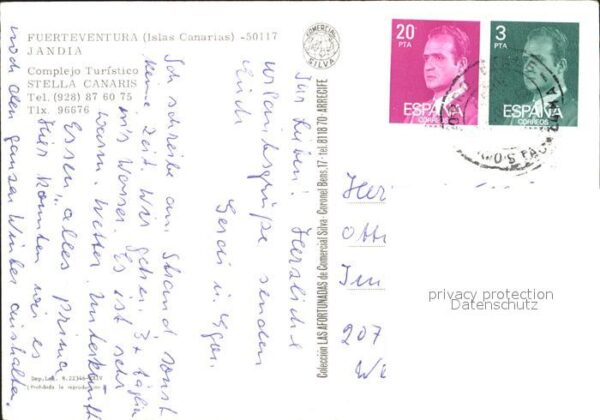 FUERTEVENTURA (Islas Canarias) -50117
JANDIA
Complejo Turístico
STELLA CANARIS
Tel. (928) 87 60 75
Tlx. 96676
COMERCIAL
SILVA
20
PTA
ESPAÑA
CORREOS
3
PTA
ESPAÑA
CORREOS
Ihr Lieben! Herzliche
Urlaubsgrüße senden
Euch
Gerdi u. Egon.
Ich schreibe am Strand sonst
keine Zeit. Wir gehen 3x täglich
ins Wasser. Es ist sehr
warm. Wetter, Unterkunft
Essen, alles prima.
Hier könnten wir es
noch den ganzen Winter aushalten.
Colección LAS AFORTUNADAS de Comercial Silva - Coronel Bens, 17 - Tel. 81 18 70 - ARRECIFE
Her
Otti
Im
207
We
privacy protection
Datenschutz
(Prohibida la reproducción)